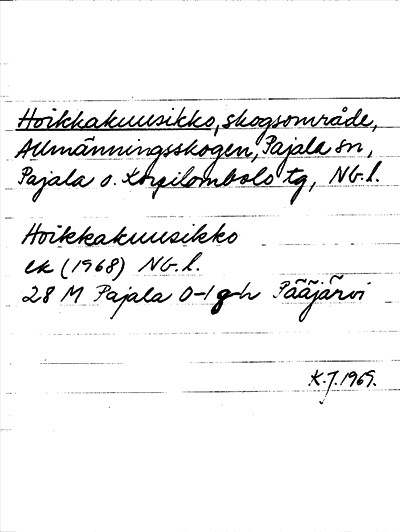 Hoikkakuusikko, skogsområde,
Allmänningsskogen, Pajala sn,
Pajala o. Korpilombolo tg, Nb. l.
Hoikkakuusikko
ek (1968) Nb. l.
28 M Pajala 0-1 g-h Pääjärvi
K.J. 1969.